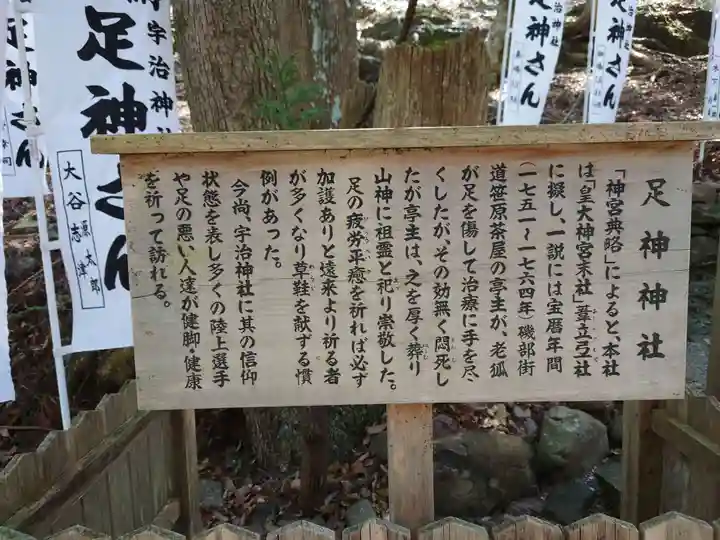 足神神社
「神宮典略」によると、本社
は「皇大神宮末社」葦立弖社
に擬し、一説には宝暦年間
(一七五一～一七六四年)磯部街
道笹原茶屋の亭主が、老狐
が足を傷して治療に手を尽
くしたが、その効無く悶死し
たが亭主は、之を厚く葬り
山神に祖霊と祀り崇敬した。
足の疲労平癒を祈れば必ず
加護ありと遠来より祈る者
が多くなり草鞋を献ずる慣
例があった。
今尚、宇治神社に其の信仰
状態を表し多くの陸上選手
や足の悪い人達が健脚・健康
を祈って訪れる。
足神さん
治神社
足神さん
宇治神社
足神さん
大谷志津
太郎
神さん